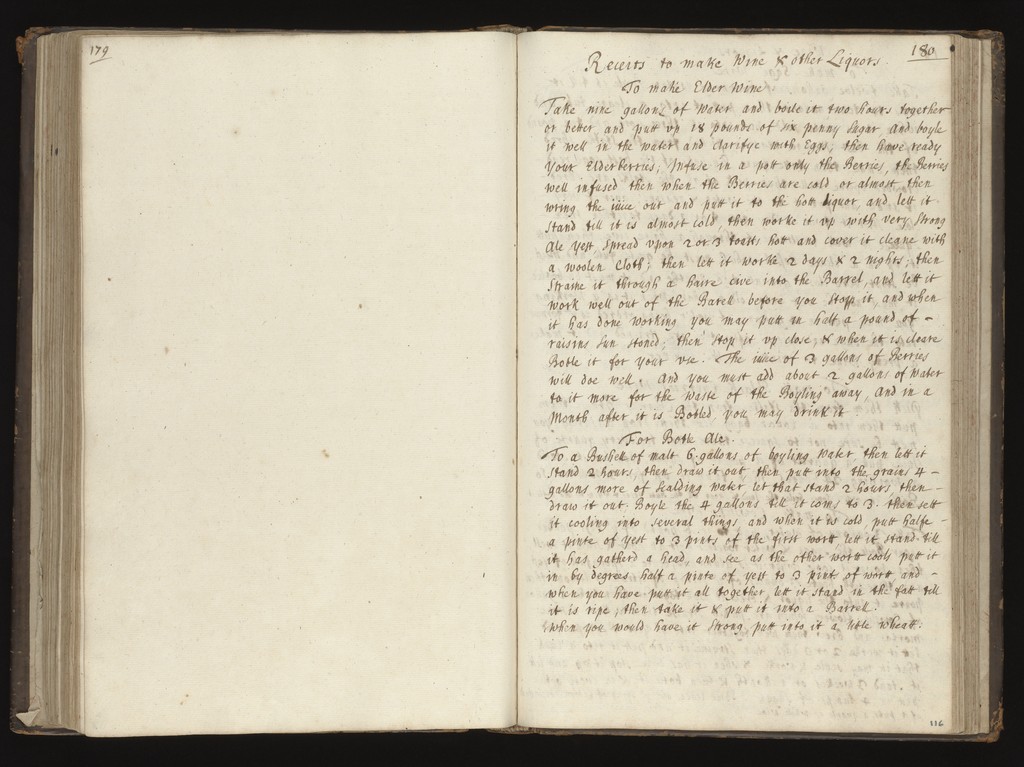 179
180
Receits to make Wine & other Liquors.
To make Elder Wine
Take nine gallons of Water and boile it two hours together
or better and putt vp 18 pounds of six penny Sugar and boyle
it well in the water and clarifye with Eggs; then have ready
your Elderberries, Infuse in a pott only the Berries, the Berries
well infused then when the Berries are cold or almost then
wring the iuice out and putt it to the hott liquor, and lett it
stand till it is almost cold, then worke it vp with very Strong
Ale yest spread vpon 2 or 3 toasts hott and cover it cleane with
a woolen Cloth; then lett it worke 2 days & 2 nights; then
straine it through a haire cive into the Barrel, and lett it
work well out of the Barell before you stopp it, and when
it has done working you may putt in half a pound of -
raisins sun stoned; then stop it vp close, & when it is cleare
Botle it for your vse. The iuice of 3 gallons of Berries
will doe well. And you must add about 2 gallons of water
to it more for the waste of the Boyling away, And in a
Month after it is Botled you may drink it.
For Botle Ale.
To a Bushell of malt 6 gallons of boyling Water, then lett it
stand 2 hours, then draw it out then putt into the grains 4 -
gallons more of scalding water let that stand 2 hours, then -
draw it out. Boyle the 4 gallons till it coms to 3. then sett
it cooling into several things, and when it is cold, putt halfe -
a pinte of yest to 3 pints of the first wortt lett it stand till
it has gatherd a head, and see as the other wortt cools putt it
in by degrees half a pinte of yest to 3 pints of wortt and -
when you have putt it all together, lett it stand in the fatt till
it is ripe, then take it & putt it into a Barrell.
When you would have it strong putt into it a little wheatt.
116